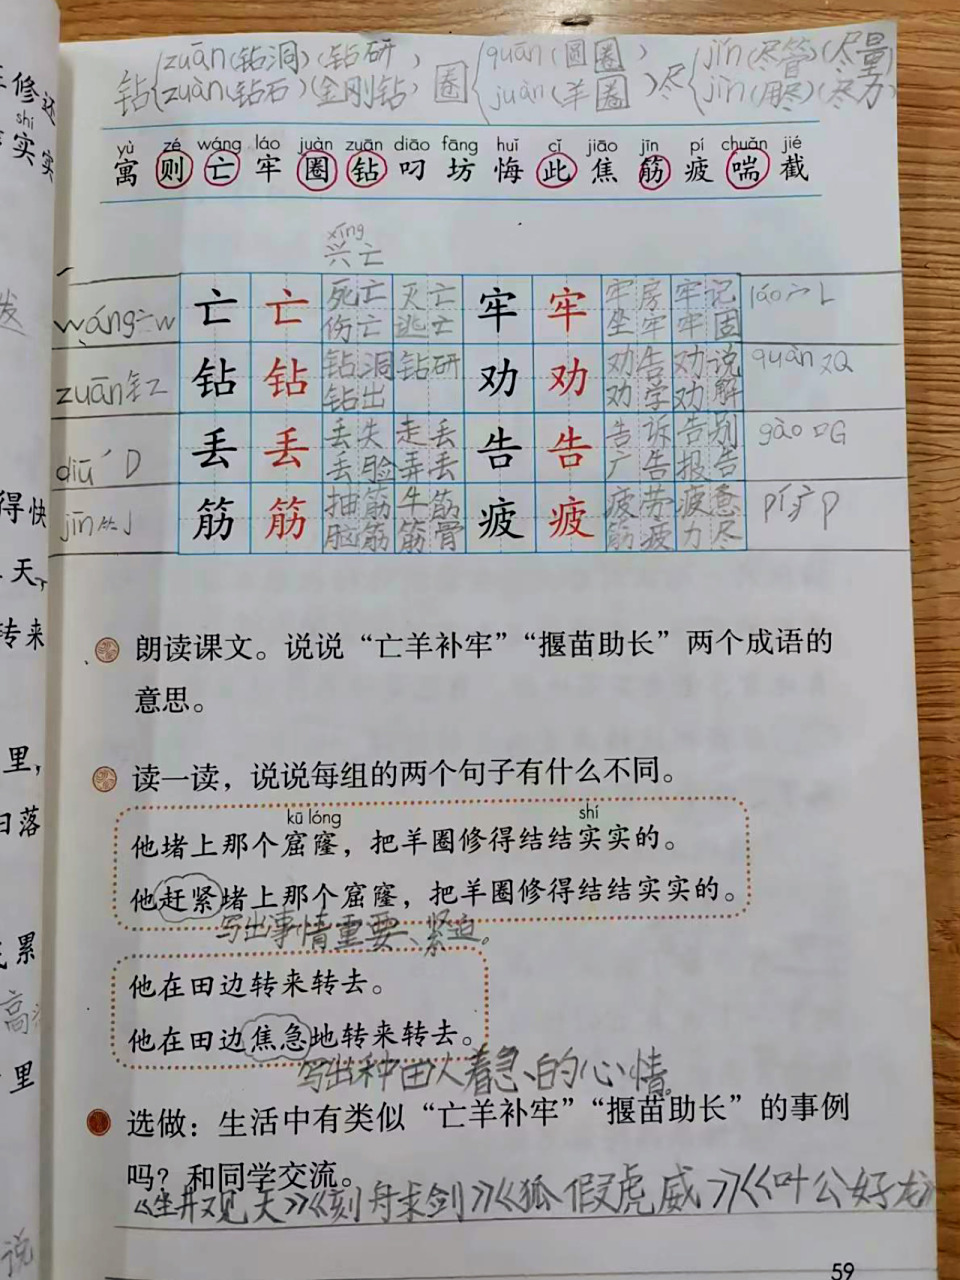 钻{zuān(钻洞)(钻研) 圈{quān(圆圈) 尽{jǐn(尽管)(尽量)
zuàn(钻石)(金刚钻) juàn(羊圈) jìn(用尽)(尽力)
yù zé wáng láo juàn zuān diāo fāng huǐ cǐ jiāo jīn pí chuǎn jié
寓 则 亡 牢 圈 钻 叼 坊 悔 此 焦 筋 疲 喘 截
xīng
兴亡
wáng亠w 亡 亡 死亡 灭亡 牢 牢 牢房 牢记 láo宀L
伤亡 逃亡 坐牢 牢固
zuān钅Z 钻 钻 钻洞 钻研 劝 劝 劝告 劝说 quàn又Q
钻出 劝学 劝解
diū丿D 丢 丢 丢失 走丢 告 告 告诉 告别 gào口G
丢脸 弄丢 广告 报告
jīn⺮J 筋 筋 抽筋 牛筋 疲 疲 疲劳 疲惫 pí疒P
脑筋 筋骨 筋疲力尽
朗读课文。说说“亡羊补牢”“揠苗助长”两个成语的
意思。
读一读，说说每组的两个句子有什么不同。
kū lóng shí
他堵上那个窟窿，把羊圈修得结结实实的。
他赶紧堵上那个窟窿，把羊圈修得结结实实的。
写出事情重要、紧迫。
他在田边转来转去。
他在田边焦急地转来转去。
写出种田人着急的心情。
选做：生活中有类似“亡羊补牢”“揠苗助长”的事例
吗？和同学交流。
《坐井观天》《刻舟求剑》《狐假虎威》《叶公好龙》
59
修还
shí
实实
发
得快
天，
转来
里，
日落
累
高
里
说